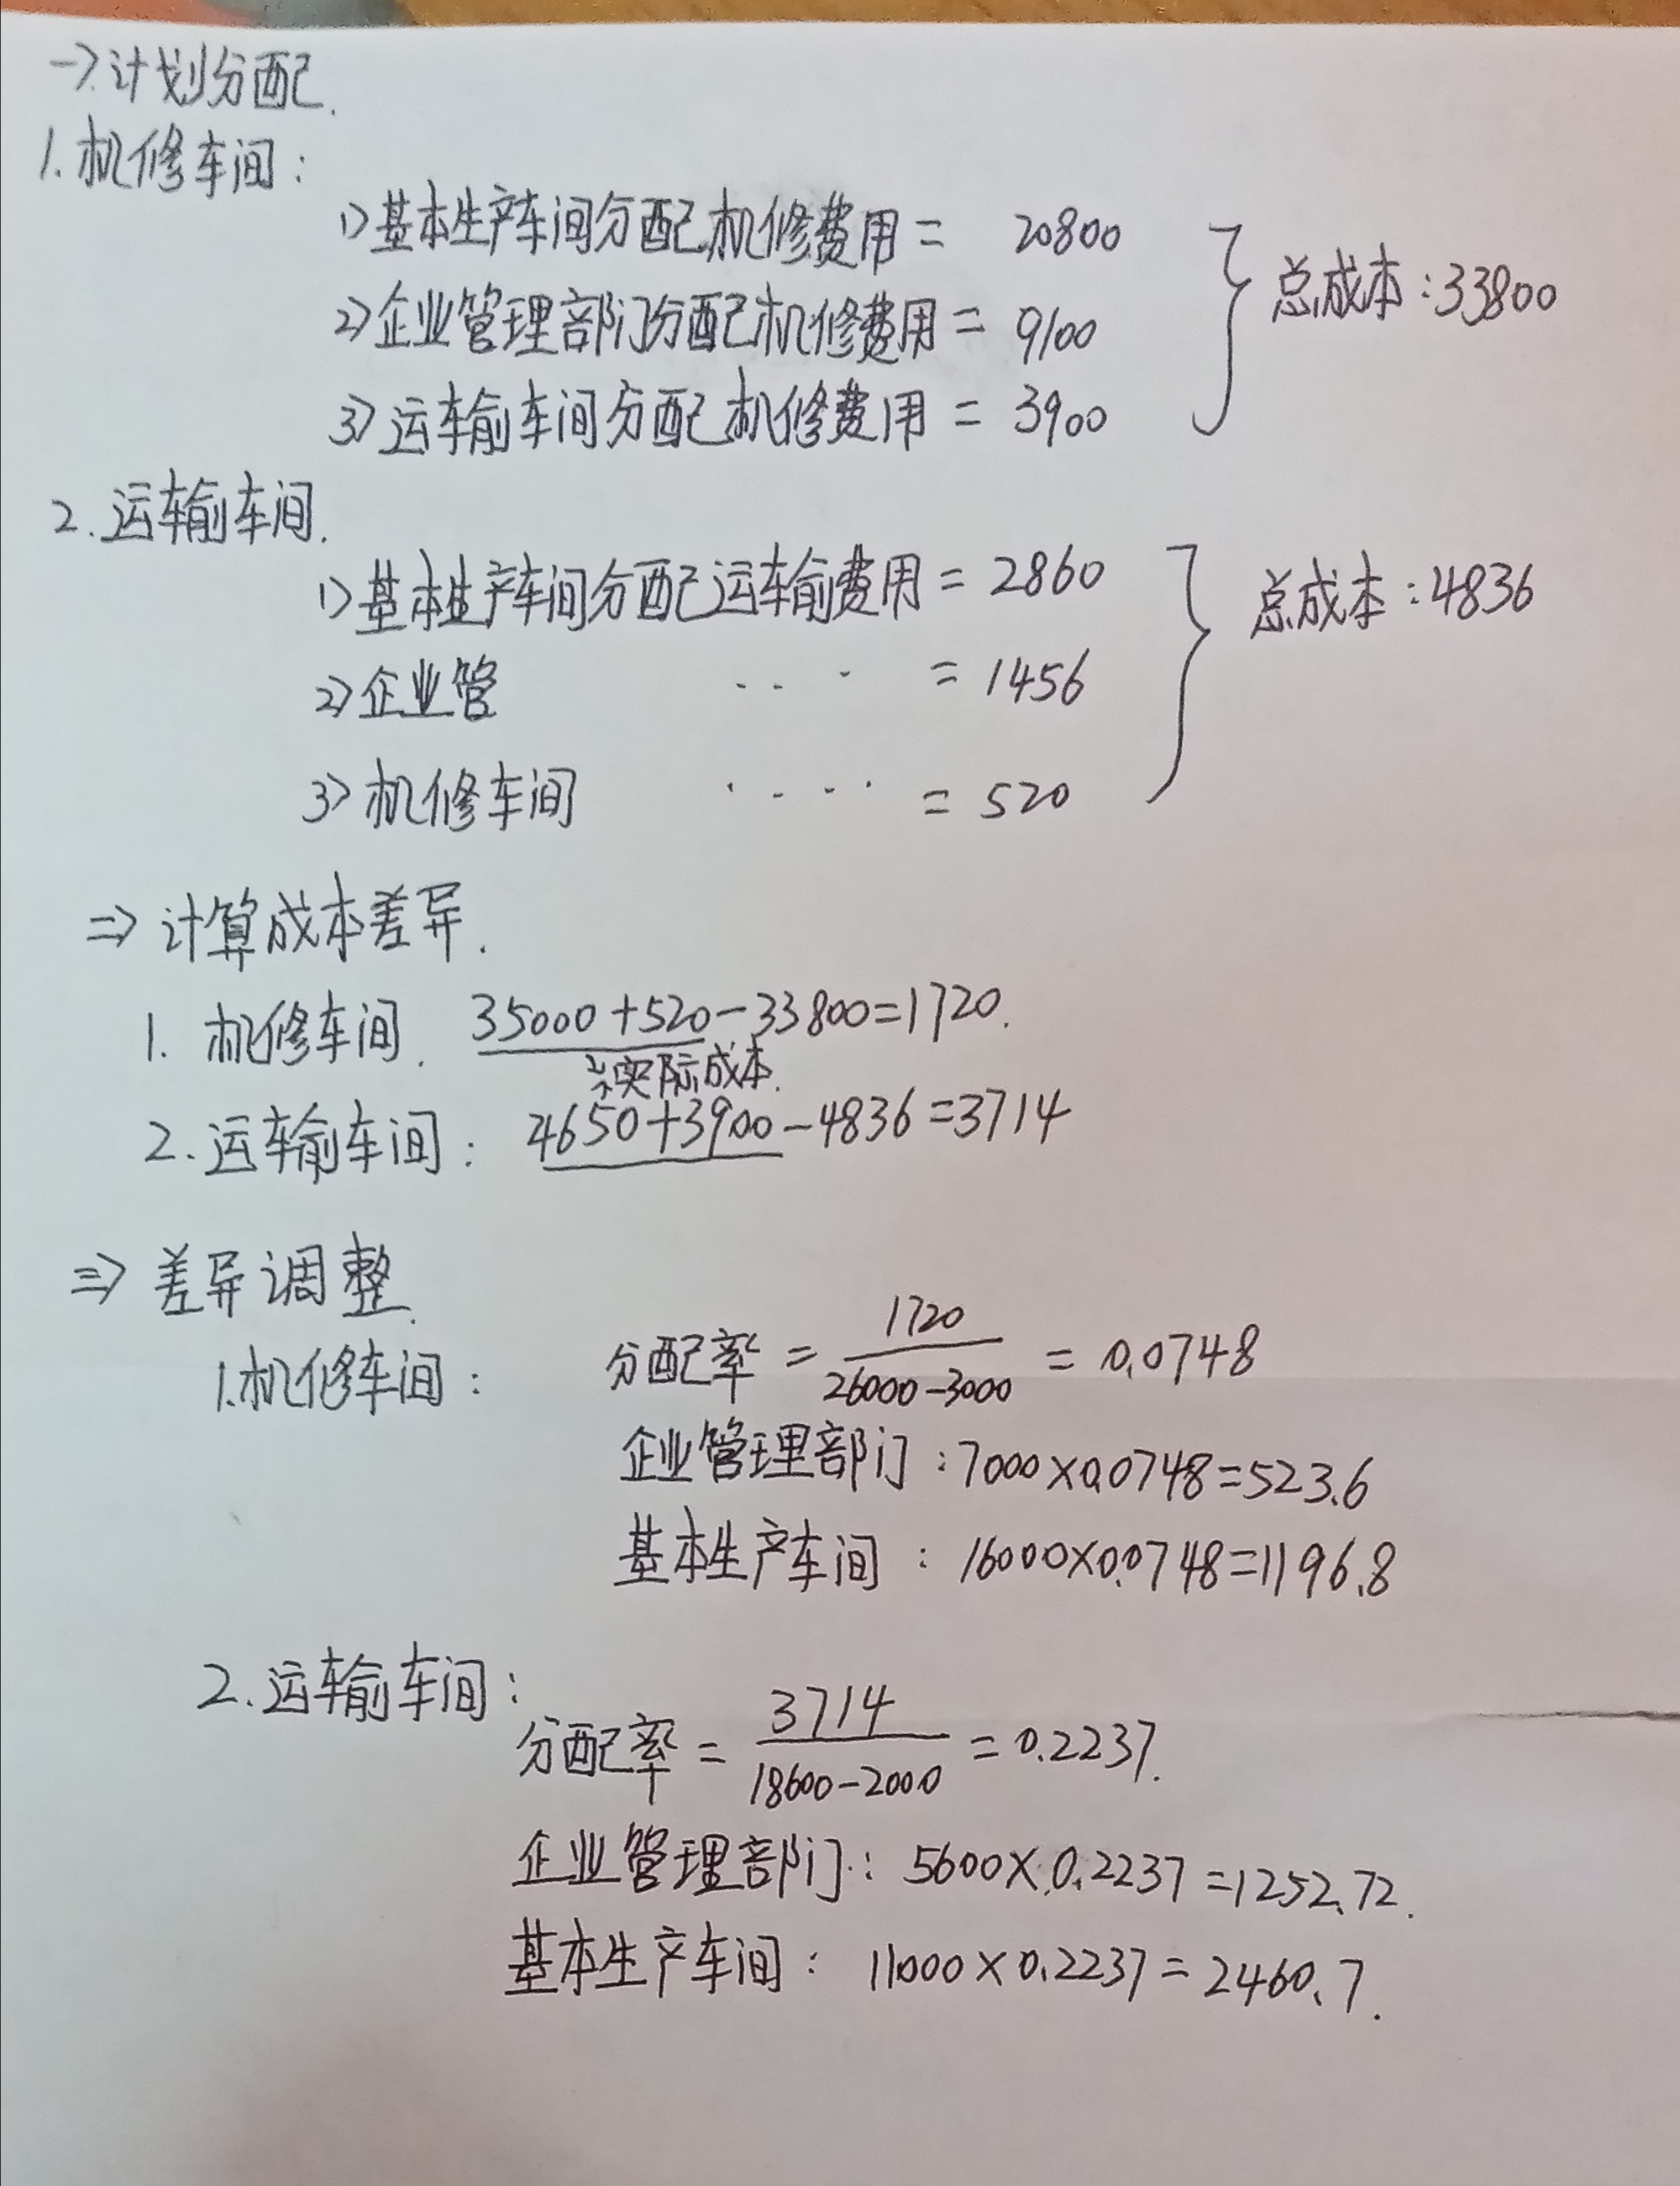 一>计划分配.
1.机修车间:
1>基本生产车间分配机修费用= 20800
2>企业管理部门分配机修费用= 9100
总成本:33800
3>运输车间分配机修费用= 3900
2.运输车间.
1>基本生产车间分配运输费用=2860
总成本:4836
2>企业管 ... =1456
3>机修车间 .... =520
二>计算成本差异.
1. 机修车间. 35000+520-33800=1720.
实际成本.
2.运输车间: 4650+3900-4836=3714
三>差异调整.
1.机修车间: 分配率=1720/26000-3000=0.0748
企业管理部门:7000×0.0748=523.6
基本生产车间:16000×0.0748=1196.8
2.运输车间:
分配率=3714/18600-2000=0.2237.
企业管理部门:5600×0.2237=1252.72.
基本生产车间:11000×0.2237=2460.7.